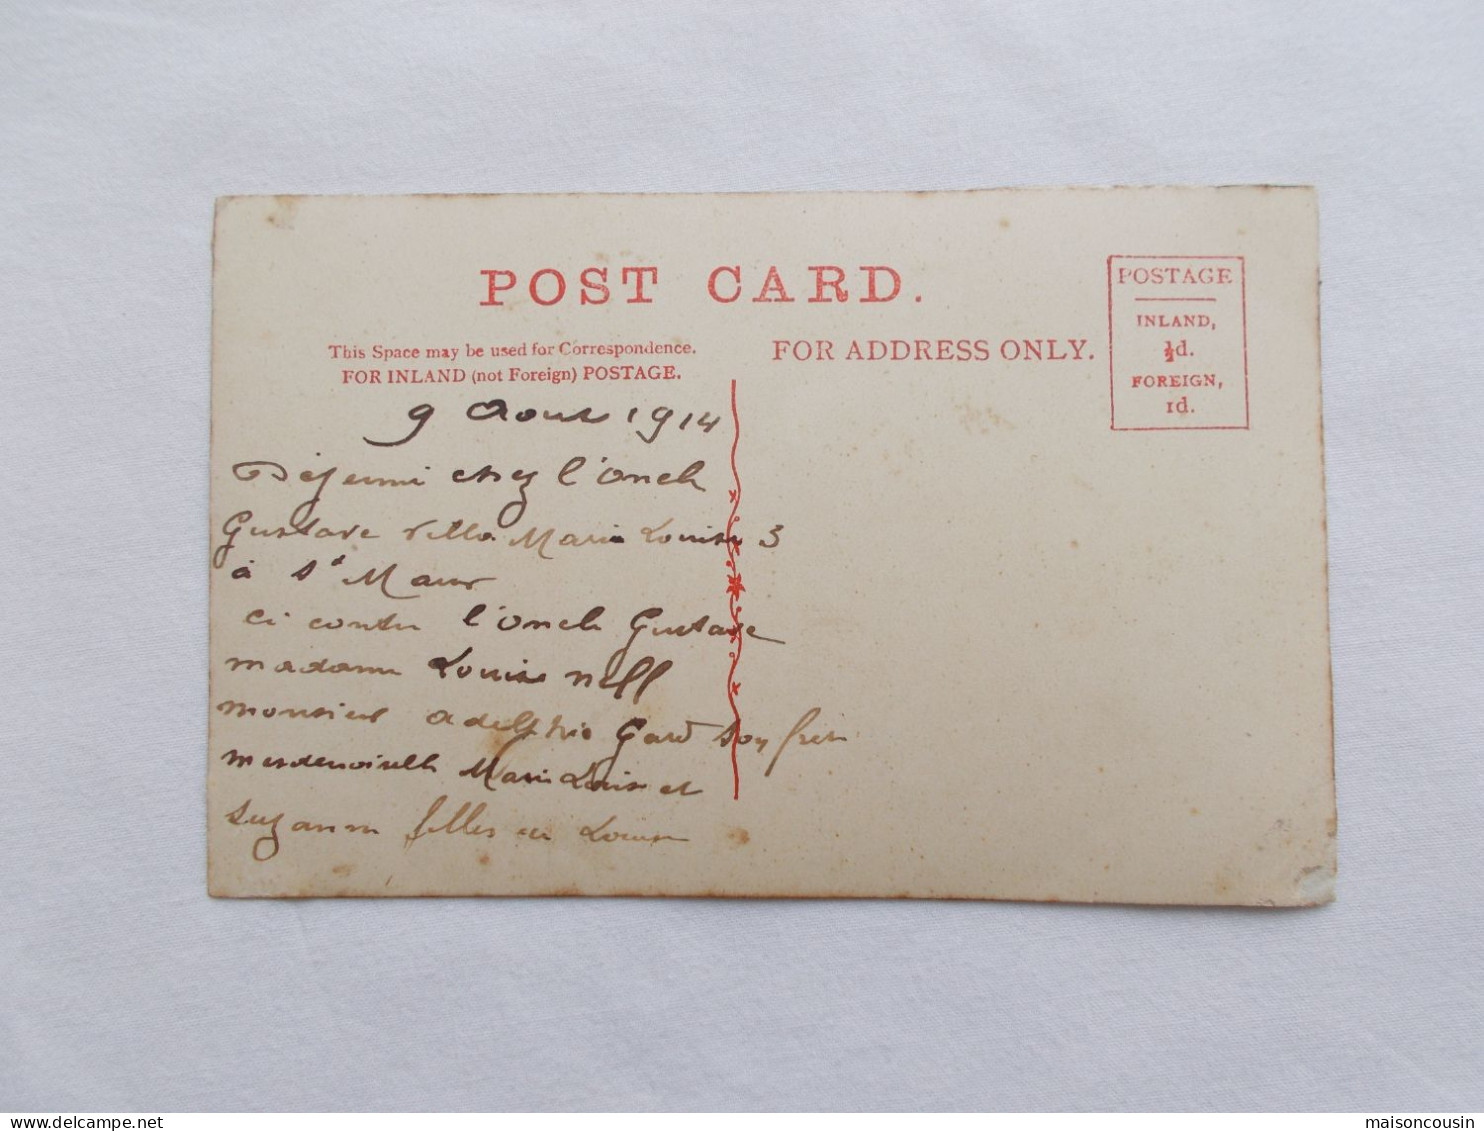 POST CARD.
This Space may be used for Correspondence.
FOR INLAND (not Foreign) POSTAGE.
FOR ADDRESS ONLY.
POSTAGE
INLAND,
½d.
FOREIGN,
1d.
9 Aout 1914
Déjeuné chez l'oncle
Gustave villa Marie Louise 3
à St Maur
ci contre l'oncle Gustave
madame Louise
monsieur adelphie Gard son frere
mesdemoiselle Marie Louise et
suzanne filles de Louise
maisoncousin